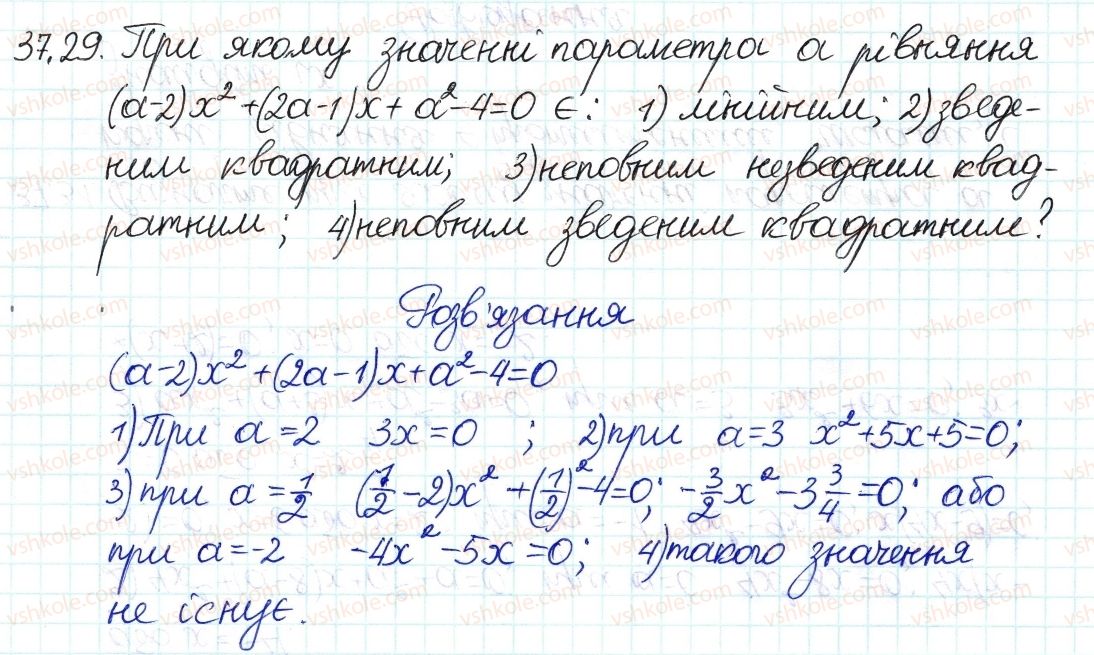 37.29. При якому значенні параметра а рівняння
(a-2)x² + (2a-1)x + a² - 4 = 0 є: 1) лінійним; 2) зведе-
ним квадратним; 3) неповним незведеним квад-
ратним; 4) неповним зведеним квадратним?
Розв'язання
(a-2)x² + (2a-1)x + a² - 4 = 0
1) При a = 2 3x = 0 ; 2) при a = 3 x² + 5x + 5 = 0;
3) при a = 1/2 (1/2 - 2)x² + (1/2)² - 4 = 0; -3/2 x² - 3 3/4 = 0; або
при a = -2 -4x² - 5x = 0; 4) такого значення
не існує.